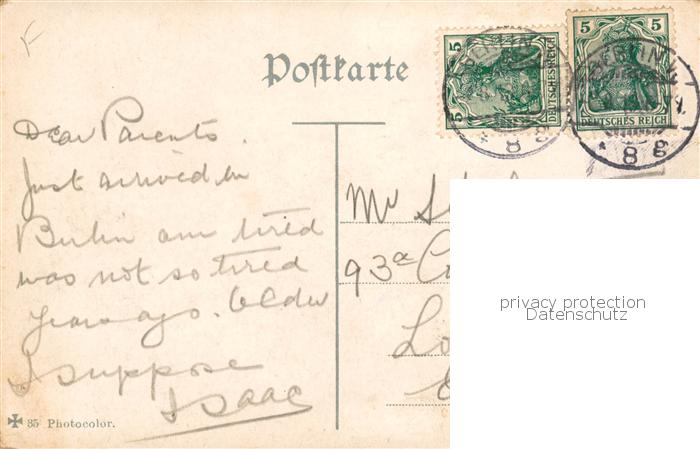 Postkarte
5
DEUTSCHES REICH
5
5
5
DEUTSCHES REICH
BERLIN
* 8 g
BERLIN
* 8 g
Dear Parents.
Just arrived in
Berlin am tired
was not so tired
years ago. Older
I suppose
Isaac
35 Photocolor.
Mr
93a
privacy protection
Datenschutz